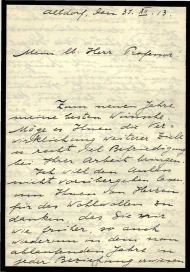 Altdorf, den 31. XII. 13.
Mein l. Herr Professor
Zum neuen Jahre
meine besten Wünsche
Möge es Ihnen die Ver-
wirklichung weiterer Ziele
u. recht viel Befriedigung
bei Ihrer Arbeit bringen.
Ich will den Anlass
nicht vorübergehen lassen
um Ihnen von Herzen
für das Wohlwollen zu
danken, das Sie mir
wie früher, so auch
wiederum in dem nun
abgelaufenen Jahre in
jeder Beziehung